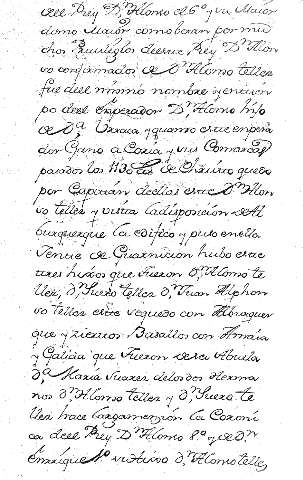 del Rey D.n Alonso el 6º y su Maior
domo Maior como consta por mu
chos Privilegios de este Rey D.n Alon
so confirmados de D.n Alonso tellez
fue del mismo nombre y en tiem
po del Emperador D.n Alonso hijo
de D.a Urraca y quando este empera
dor Gano a Coria y sus Comarcas
pasados los de quedo
por Capitan de ellas este D.n Alon
so tellez y vista la disposicion de Al
burquerque la edifico y puso en ella
Jente de Guarnicion hubo este
tres hixos que fueron D.n Alonso te
llez, D.n Suero tellez D.n Juan Alphon
so tellez este se quedo con Alburquer
que y ziertos Basallos con
y Galicia que fueron de su Abuela
D.a Maria Suarez de los dos Herma
nos D.n Alonso tellez y D.n Suero te
llez hace larga menzion la Coroni
ca del Rey D.n Alonso 8º y de D.n
Enrrique 1º su D.n Alonso tellez